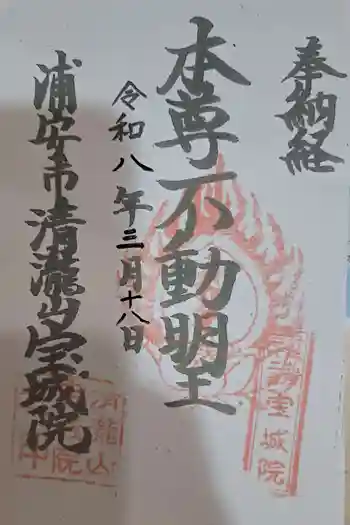 奉納経
本尊不動明王
令和八年三月十八日
浦安市清瀧山宝城院
宝城院